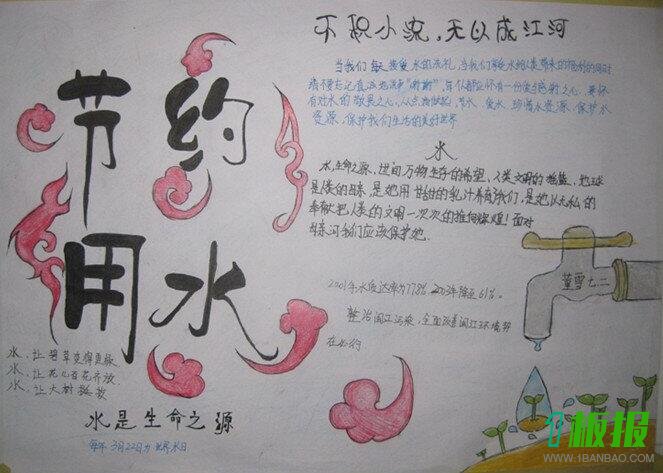 节约
用水
不积小流,无以成江河
当我们每天接受水的洗礼,当我们享受水给人类带来的福利的同时
请不要忘记真诚地说声"谢谢",每人都应怀有一份爱与感谢之心,要怀
有对水的敬畏之心,从点滴做起,节水、爱水、珍惜水资源,保护水
资源,保护我们生活的美好世界
水
水,生命之源,世间万物生存的希望,人类文明的摇篮,地球
是人类的母亲,是她用甘甜的乳汁养育我们,是她从无私的
奉献把人类的文明一次次的推向辉煌!面对
母亲河我们应该保护她.
2001年水质达标为77.8%,2003年降至61%.
整治闽江污染,全面改善闽江环境势
在必行
水,让碧草变得更绿
水,让花儿百花齐放
水,让大树挺拔
水是生命之源
每年3月22日为世界水日
董雪七二
板报
WWW.1BANBAO.COM